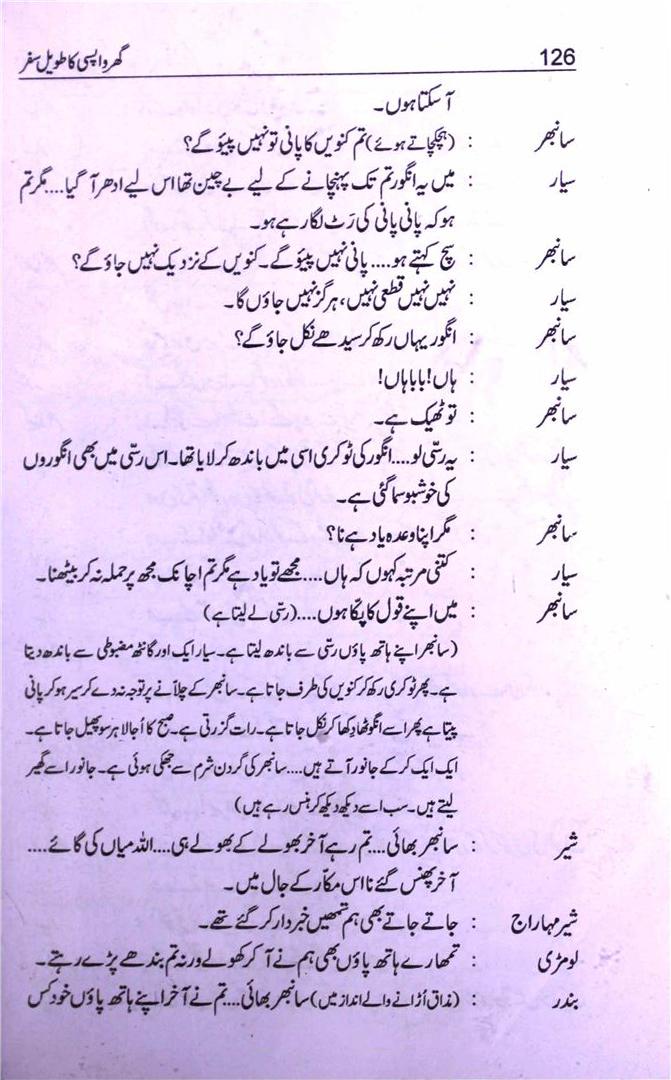 126 گھر واپسی کا طویل سفر
آ سکتا ہوں۔
سانبھر : (ہچکچاتے ہوئے) تم کنویں کا پانی تو نہیں پیئو گے؟
سیار : میں یہ انگور تم تک پہنچانے کے لیے بے چین تھا اس لیے ادھر آ گیا.... مگر تم
ہو کہ پانی پانی کی رَٹ لگا رہے ہو۔
سانبھر : سچ کہتے ہو.... پانی نہیں پیئو گے۔ کنویں کے نزدیک نہیں جاؤ گے؟
سیار : نہیں نہیں قطعی نہیں، ہرگز نہیں جاؤں گا۔
سانبھر : انگور یہاں رکھ کر سیدھے نکل جاؤ گے؟
سیار : ہاں! بابا ہاں!
سانبھر : تو ٹھیک ہے۔
سیار : یہ رسّی لو.... انگور کی ٹوکری اسی میں باندھ کر لایا تھا۔ اس رسّی میں بھی انگوروں
کی خوشبو سما گئی ہے۔
سانبھر : مگر اپنا وعدہ یاد ہے نا؟
سیار : کتنی مرتبہ کہوں کہ ہاں.... مجھے تو یاد ہے مگر تم اچانک مجھ پر حملہ نہ کر بیٹھنا۔
سانبھر : میں اپنے قول کا پکّا ہوں.... (رسّی لے لیتا ہے)
(سانبھر اپنے ہاتھ پاؤں رسّی سے باندھ لیتا ہے۔ سیار ایک اور گانٹھ مضبوطی سے باندھ دیتا
ہے۔ پھر ٹوکری رکھ کر کنویں کی طرف جاتا ہے۔ سانبھر کے چلاّنے پر توجہ نہ دے کر سیر ہو کر پانی
پیتا ہے پھر اسے انگوٹھا دِکھا کر نکل جاتا ہے۔ رات گزرتی ہے۔ صبح کا اُجالا ہر سو پھیل جاتا ہے۔
ایک ایک کر کے جانور آتے ہیں.... سانبھر کی گردن شرم سے جھکی ہوئی ہے۔ جانور اسے گھیر
لیتے ہیں۔ سب اسے دیکھ دیکھ کر ہنس رہے ہیں)
شیر : سانبھر بھائی.... تم رہے آخر بھولے کے بھولے ہی.... اللہ میاں کی گائے....
آخر پھنس گئے نا اس مکاّر کے جال میں۔
شیر مہاراج : جاتے جاتے بھی ہم تمھیں خبردار کر گئے تھے۔
لومڑی : تمھارے ہاتھ پاؤں بھی ہم نے آ کر کھولے ورنہ تم بندھے پڑے رہتے۔
بندر : (مذاق اُڑانے والے انداز میں) سانبھر بھائی.... تم نے آخر اپنے ہاتھ پاؤں خود کس